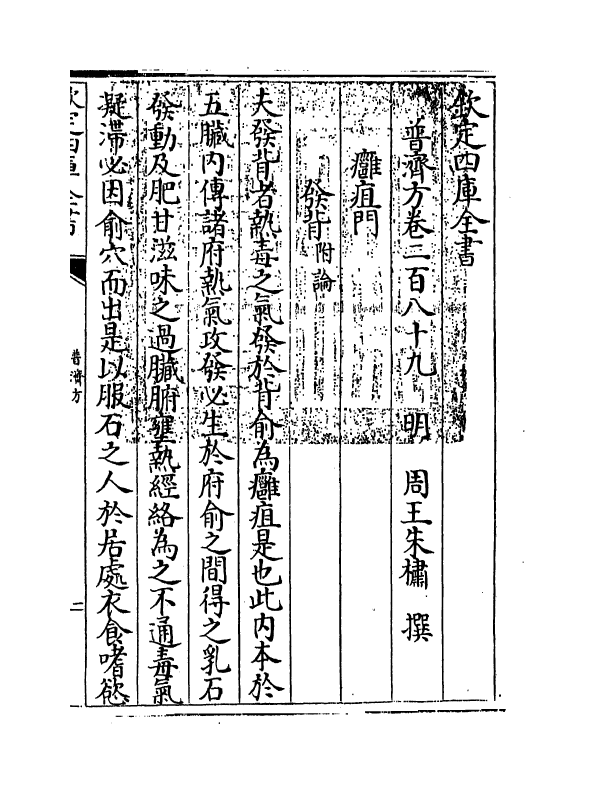 欽定四庫全書
普濟方卷二百八十九　明　周王朱橚　撰
癰疽門
發背附論
夫發背者熱毒之氣發於背俞為癰疽是也此內本於
五臟內傳諸府熱氣攻發必生於府俞之間得之乳石
發動及肥甘滋味之過臟腑壅熱經絡為之不通毒氣
凝滯必因俞穴而出是以服石之人於居處衣食嗜慾
欽定四庫全書
普濟方
二